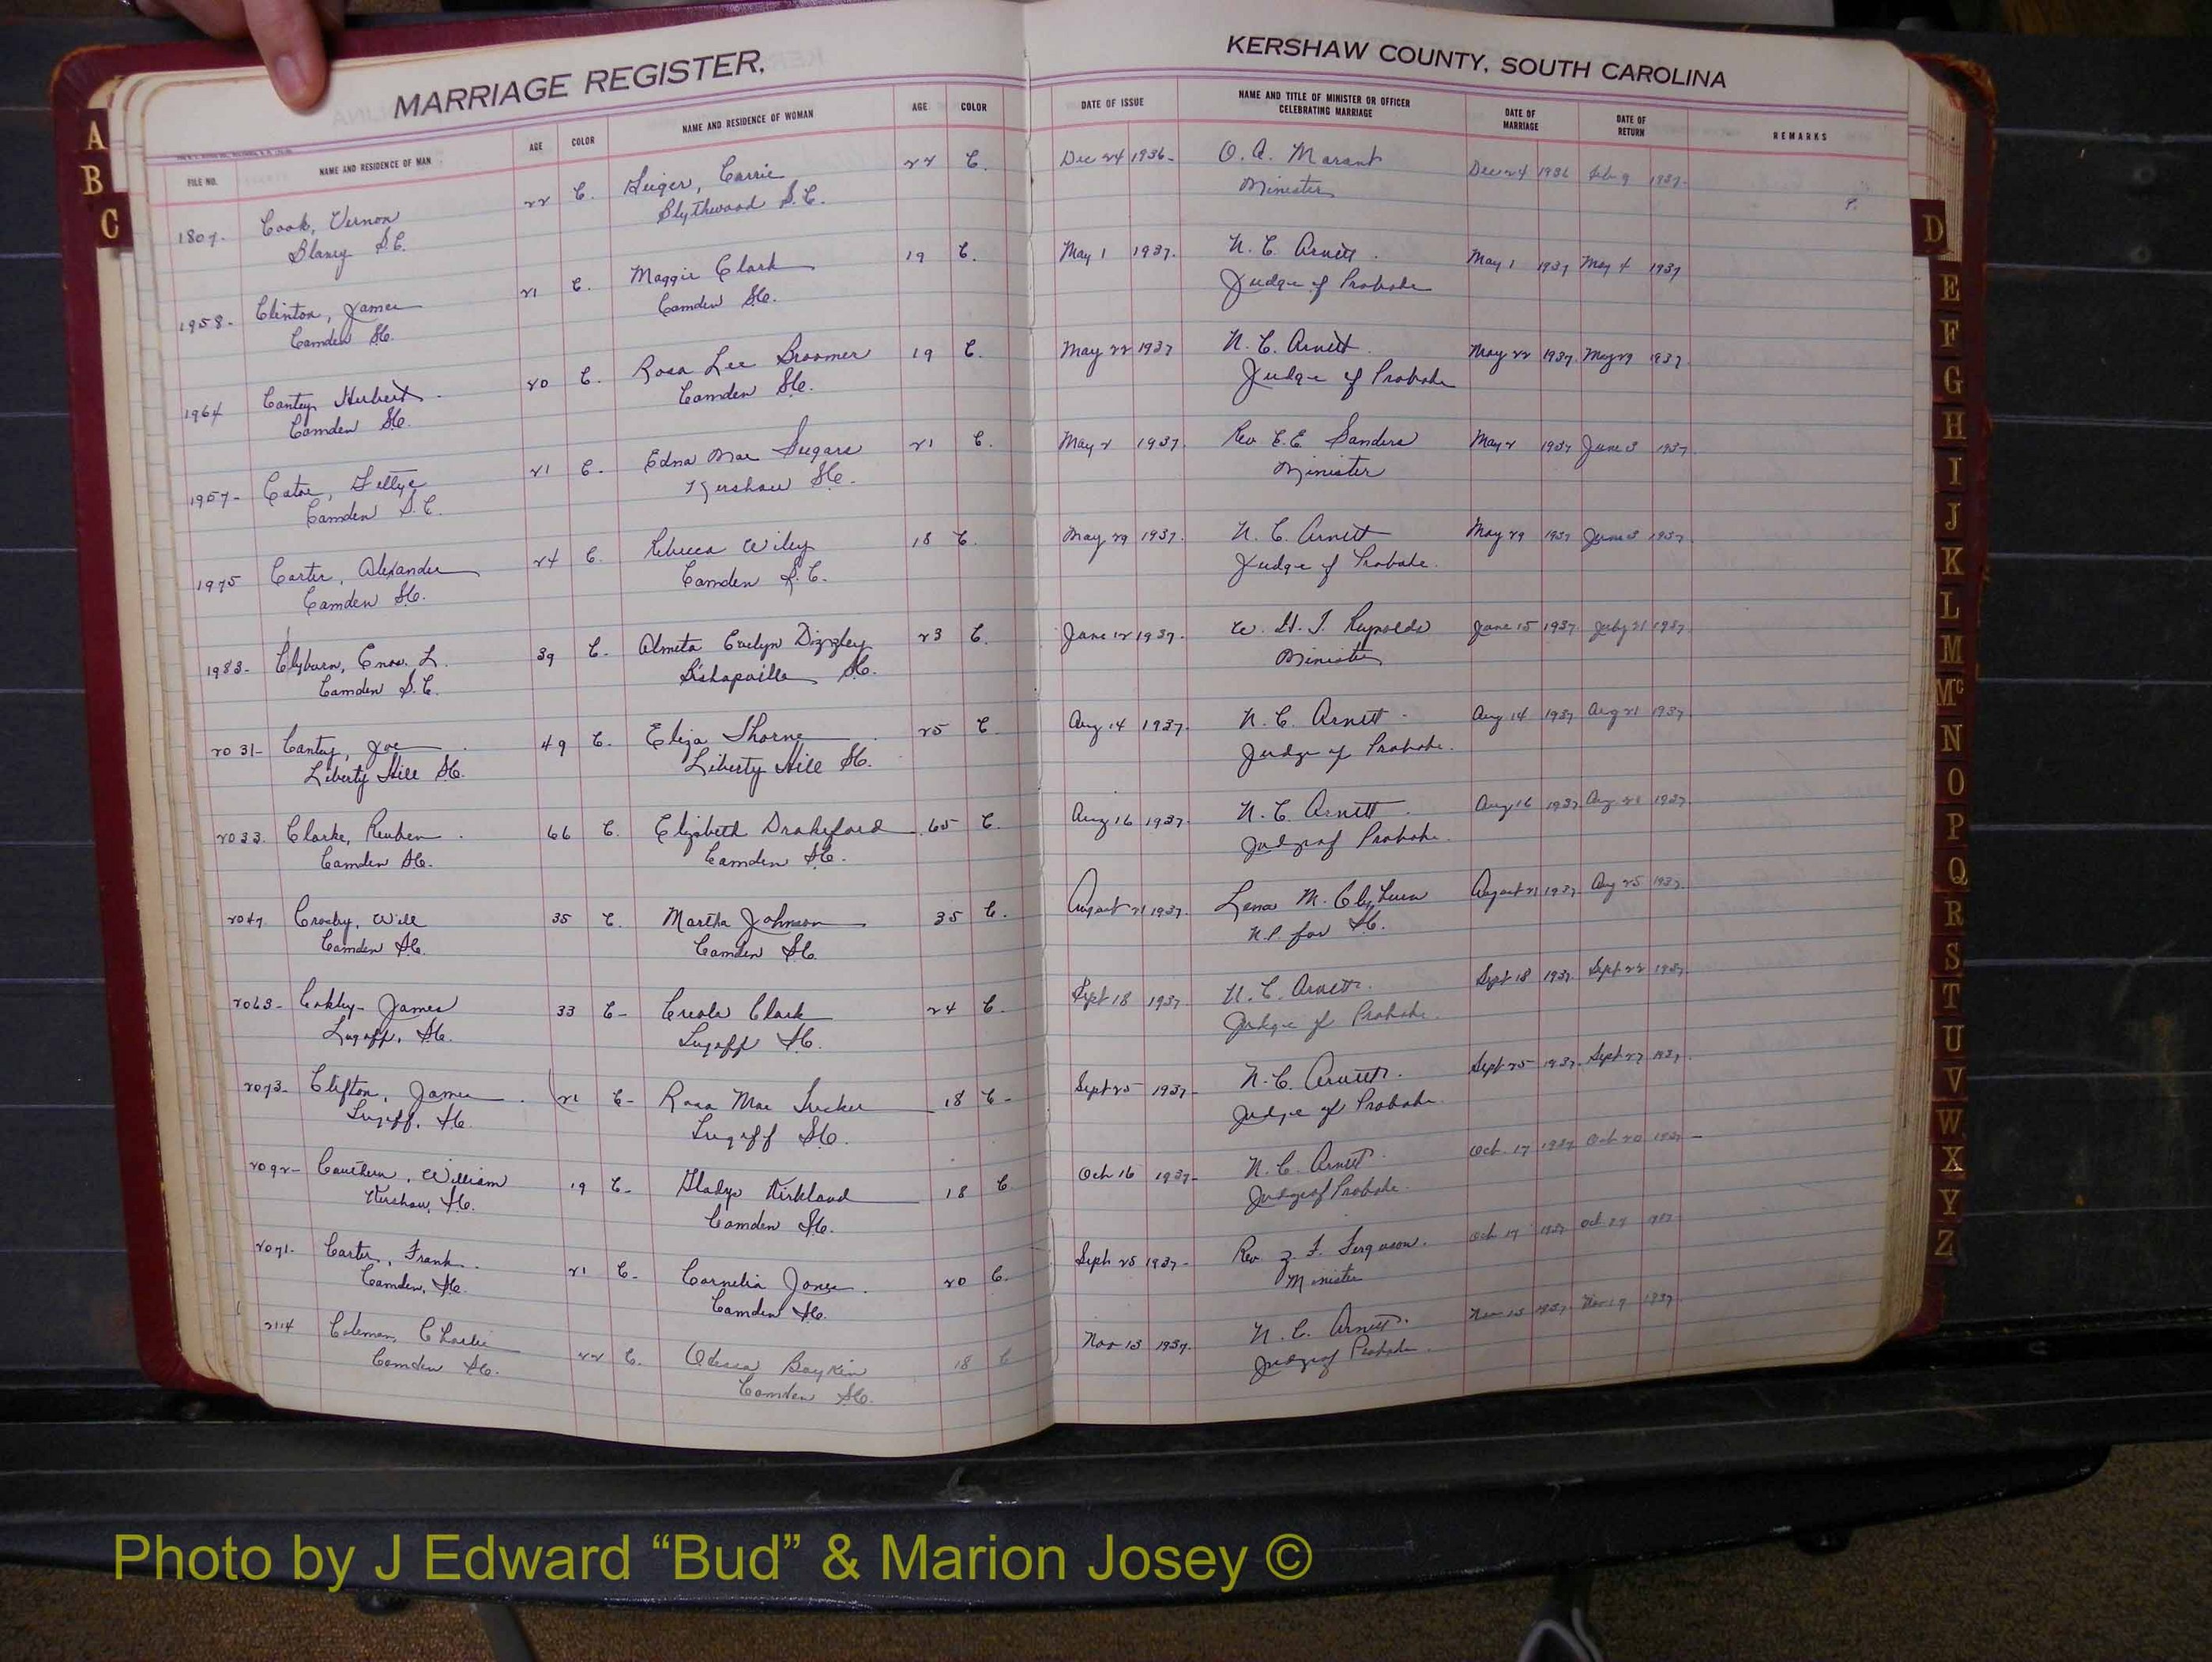 MARRIAGE REGISTER,
KERSHAW COUNTY, SOUTH CAROLINA
FILE NO. NAME AND RESIDENCE OF MAN AGE COLOR NAME AND RESIDENCE OF WOMAN AGE COLOR DATE OF ISSUE NAME AND TITLE OF MINISTER OR OFFICER CELEBRATING MARRIAGE DATE OF MARRIAGE DATE OF RETURN REMARKS
1807- Cook, Vernon 22 C. Carrie 22 C. Dec 24 1936- O. A. Dec 24 1936 Feb 9 1937-
Blaney S.C. Blythwood S.C. Minister
1958- Clinton, James 21 C. Maggie Clark 19 C. May 1 1937. N. C. Arnett May 1 1937 May 4 1937
Camden SC. Camden SC. Judge of Probate
1964 Cantey Herbert 20 C. Rosa Lee Broomer 19 C. May 22 1937 N. C. Arnett May 22 1937. May 29 1937.
Camden SC. Camden SC. Judge of Probate
1957- 21 C. Edna Mae 21 C. May 2 1937. Rev E.E. Sanders May 2 1937 June 3 1937.
Camden S.C. Kershaw SC. Minister
1975 Carter, Alexander 24 C. Rebecca Wiley 18 C. May 29 1937. N. C. Arnett May 29 1937 June 3 1937.
Camden SC. Camden S.C. Judge of Probate.
1983- Clyburn, Enos L. 39 C. Almeta Evelyn Dizzley 23 C. June 12 1937. W. H. J. Reynolds June 15 1937. July 21 1937.
Camden S.C. Bishopville SC. Minister
2031- Cantey, Joe 49 C. Eliza Thorne 25 C Aug 14 1937. N. C. Arnett Aug 14 1937 Aug 21 1937
Liberty Hill SC. Liberty Hill SC. Judge of Probate.
2033. Clarke, Reuben 66 C. Elizabeth Drakeford 65 C. Aug 16 1937. N. C. Arnett Aug 16 1937 Aug 1937.
Camden SC. Camden SC. Judge of Probate
2047. Crosby, Will 35 C. Martha Johnson 35 C. August 21 1937. Lena M. Clyburn August 21 1937. Aug 25 1937.
Camden SC. Camden SC. N.P. for SC.
2063- Cokley- James 33 C- Creola Clark 24 C. Sept 18 1937. N. C. Arnett. Sept 18 1937. Sept 22 1937.
Lugoff, SC. Lugoff SC. Judge of Probate.
2073- Clifton, James 21 C- Rosa Mae Tucker 18 C- Sept 25 1937- N. C. Arnett. Sept 25 1937. Sept 27 1937.
Lugoff, SC. Lugoff SC. Judge of Probate.
2092- Cauthen, William 19 C- Gladys Kirkland 18 C Oct 16 1937- N. C. Arnett Oct. 17 1937 Oct 20 1937-
Kershaw, SC. Camden SC. Judge of Probate.
2071- Carter, Frank 21 C- Cornelia Jones 20 C. Sept 25 1937- Rev Z. F. Ferguson. Oct 17 1937 Oct. 27 1937
Camden, SC. Camden SC. Minister
2114 Coleman, Charlie 22 C. Odessa Boykin 18 C Nov 13 1937. N. C. Arnett. Nov 13 1937. Nov 19 1937
Camden SC. Camden SC. Judge of Probate.
A
B
C
D
E
F
G
H
I
J
K
L
M
Mc
N
O
P
Q
R
S
T
U
V
W
X
Y
Z
Photo by J Edward “Bud” & Marion Josey ©